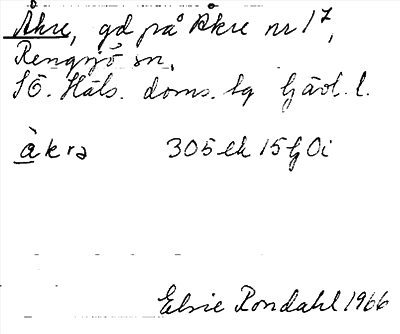 Åkre, gd på Åkre nr 1⁷,
Rengsjö sn,
SÖ. Häls. doms. hg Gävl. l.
àkrə 305 ek 15 G Oi
Elsie Rondahl 1966